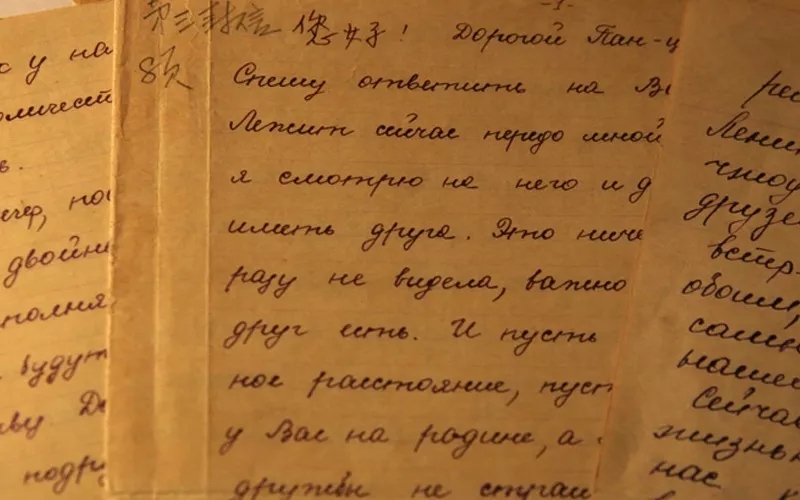 о у на
личест
ь.
двойни
полня,
будут
подру
-1-
第三封信 您好! Дорогой Пан-ц
8页
Спешу ответить на В
Лежит сейчас передо мной
я смотрю на него и д
иметь друга. Это ниче
разу не видела, важно
друг есть. И пусть
ное расстояние, пуст
у Вас на родине, а
дружбы не страш
рес
Ленин
чтоу
друзе
встр
обоим,
сами
нашей
Сейча
жизнь
нас